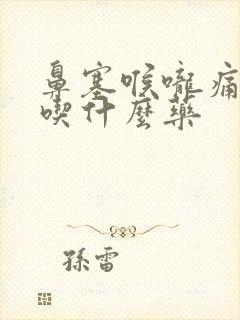 鼻塞喉嚨痛
喫什麼藥
孫雷